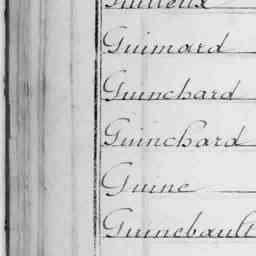 Guimard
Guinchard
Guinchard
Guine
Guinebault